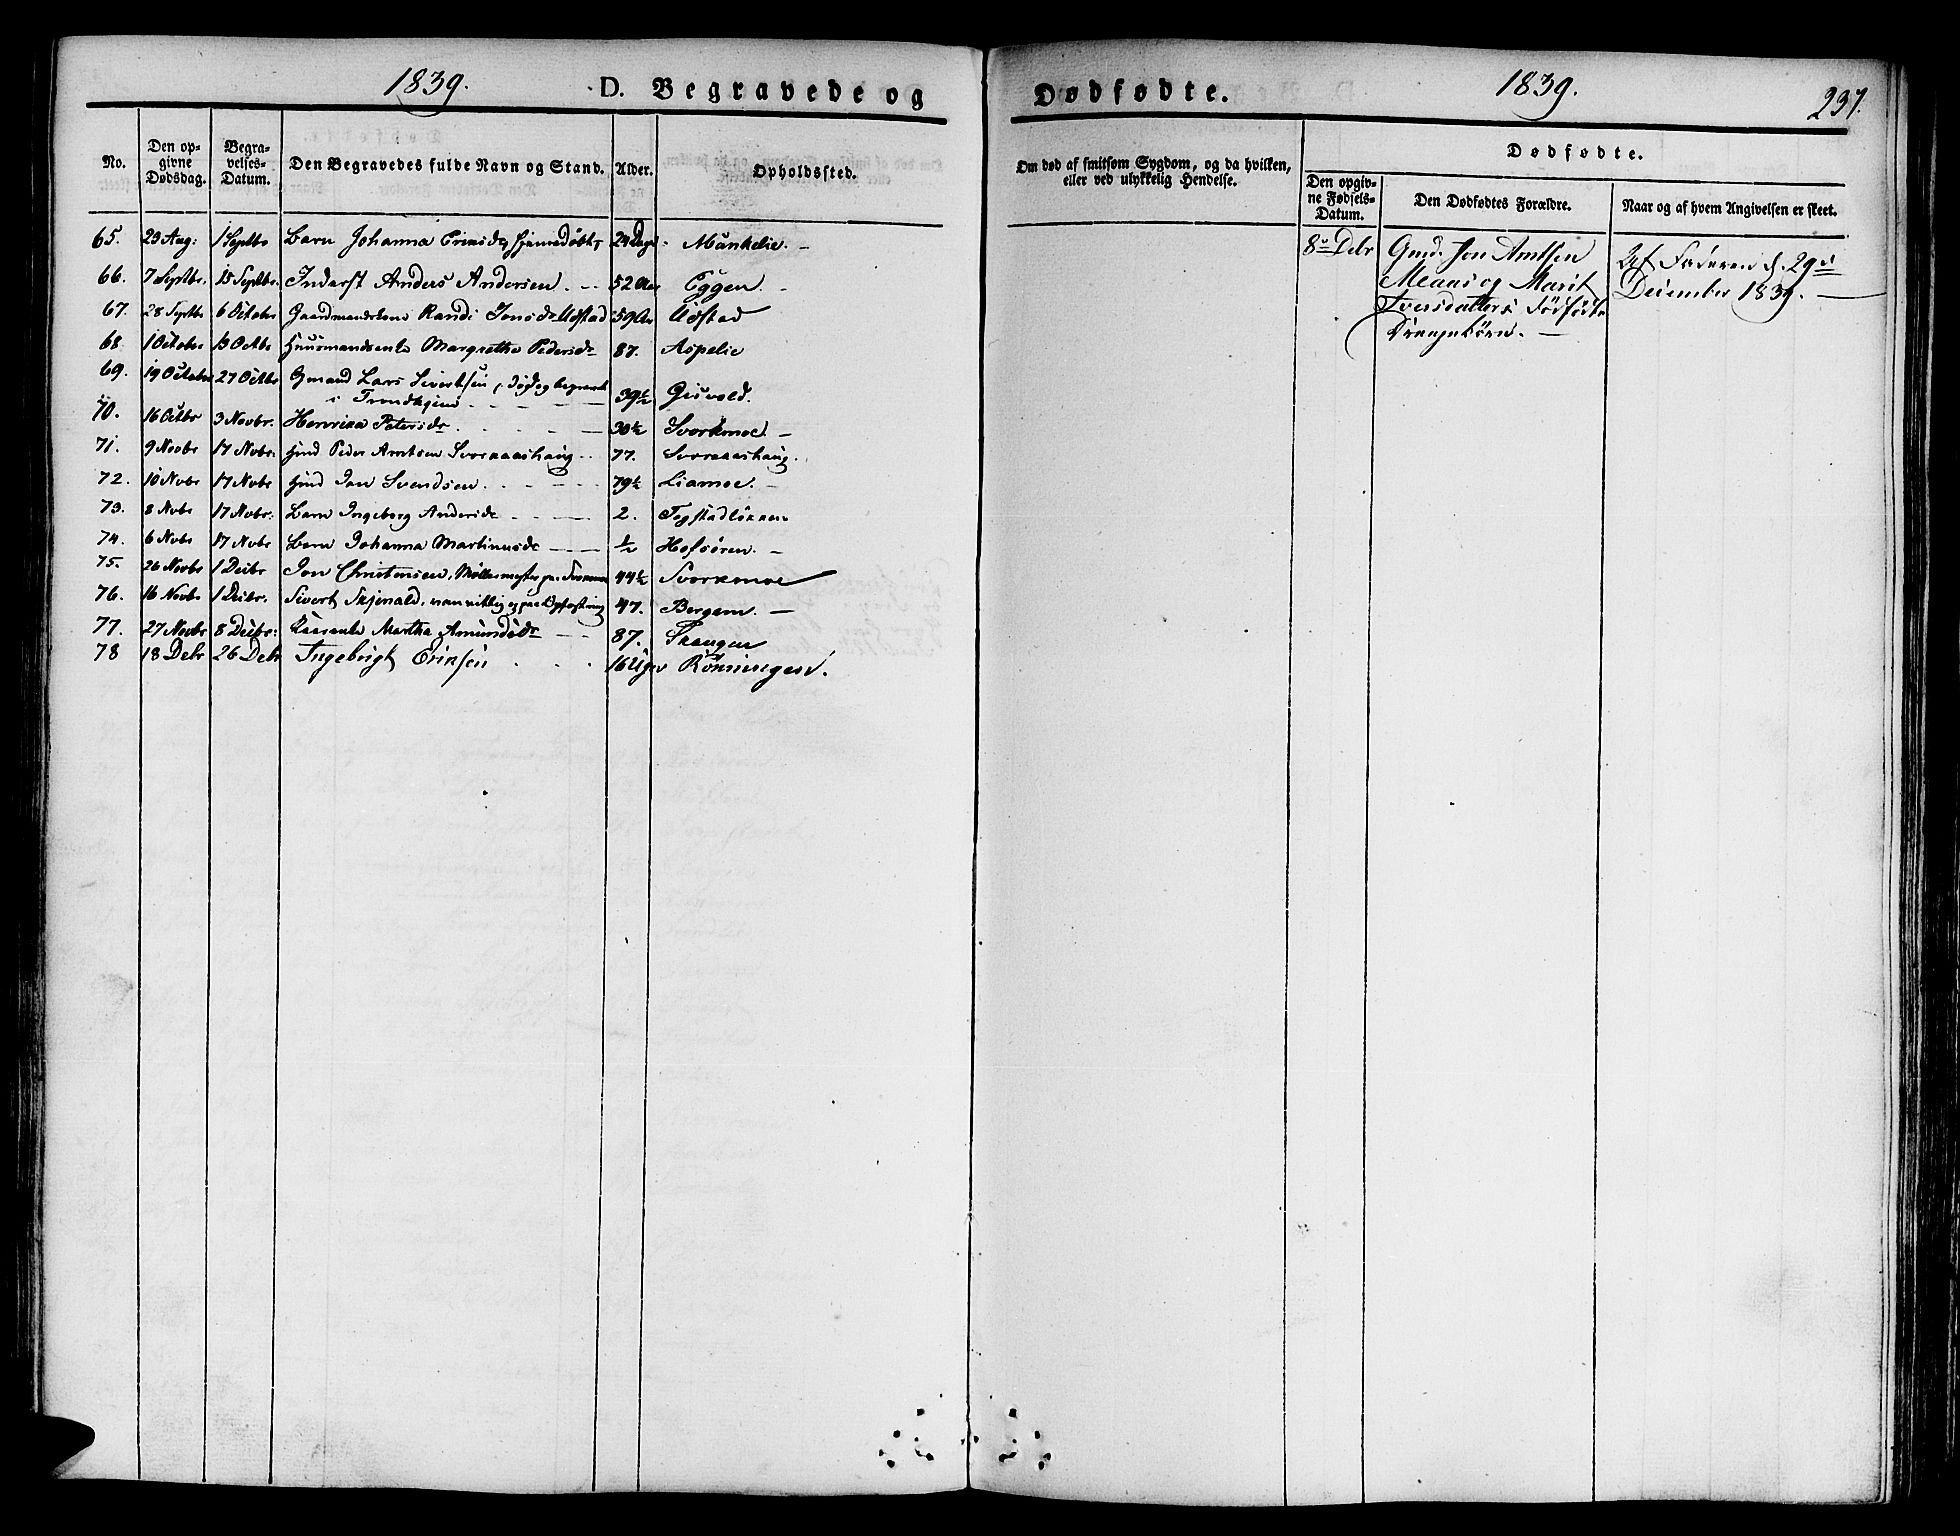 1839. D. Begravede og Dødfødte. 1839. 237.
No. Den opgivne Dødsdag. Begravelses-Datum. Den Begravedes fulde Navn og Stand. Alder. Opholdssted.
Om død af smitsom Sygdom, og da hvilken,
eller ved ulykkelig Hendelse.
Dødfødte.
Den opgivne Fødsels-Datum. Den Dødfødtes Forældre. Naar og af hvem Angivelsen er skeet.
65. 23 Aug: 1 Septbr Barn Johanna Ericsdr hjemmedøbt 24 Dage Mûnkelie. –
66. 7 Septbr. 15 Septbr. Inderst Anders Andersen. 52 Aar Eggen. –
67. 28 Septbr 6 Octobr Gaardmandskone Randi Jonsdr Udstad 59 Aar Udstad
68. 1 Octobr 13 Octbr Huusmandsenke Margrethe Pedersdr 87. Aspelie
69. 19 Octobr 27 Octbr Gmand Lars Sivertsen, død og begravet
i Trondhjem 39½ Grisvold.
70. 16 Octbr 3 Novbr. Henrica Petersdr. 30½ Svorkmoe. –
71. 9 Novbr 17 Novbr. Hmd Peder Arntsen Svorkaashaug 77. Svorkaashaug.
72. 10 Novbr 17 Novbr Hmd Jon Svendsen. 79½ Liamoe. –
73. 8 Novbr 17 Novbr: Barn Ingeborg Andersdr 2. Togstadløkken
74. 6 Novbr 17 Novbr Barn Johanna Martinusdr ½ Hofsøren. –
75. 26 Novbr 1 Decbr Jon Christensen, Møllermester paa Svorkmoe 44½ Svorkmoe
76. 16 Novbr 1 Decbr. Sivert Skjenald, vanvittig og paa Opfostring 47. Bergem. –
77. 27 Novbr 8 Decbr: Kaarenke Martha Amundsdr 87. Skaugen
78 18 Debr 26 Debr Ingebrigt Ericsen 16 Uger Rønningen.
8de Debr Gmd. Jon Arntsen
Meaas og Marit
Iversdatters Dødfødte
Drengebørn. –
Af Faderen d. 29de
December 1839. –